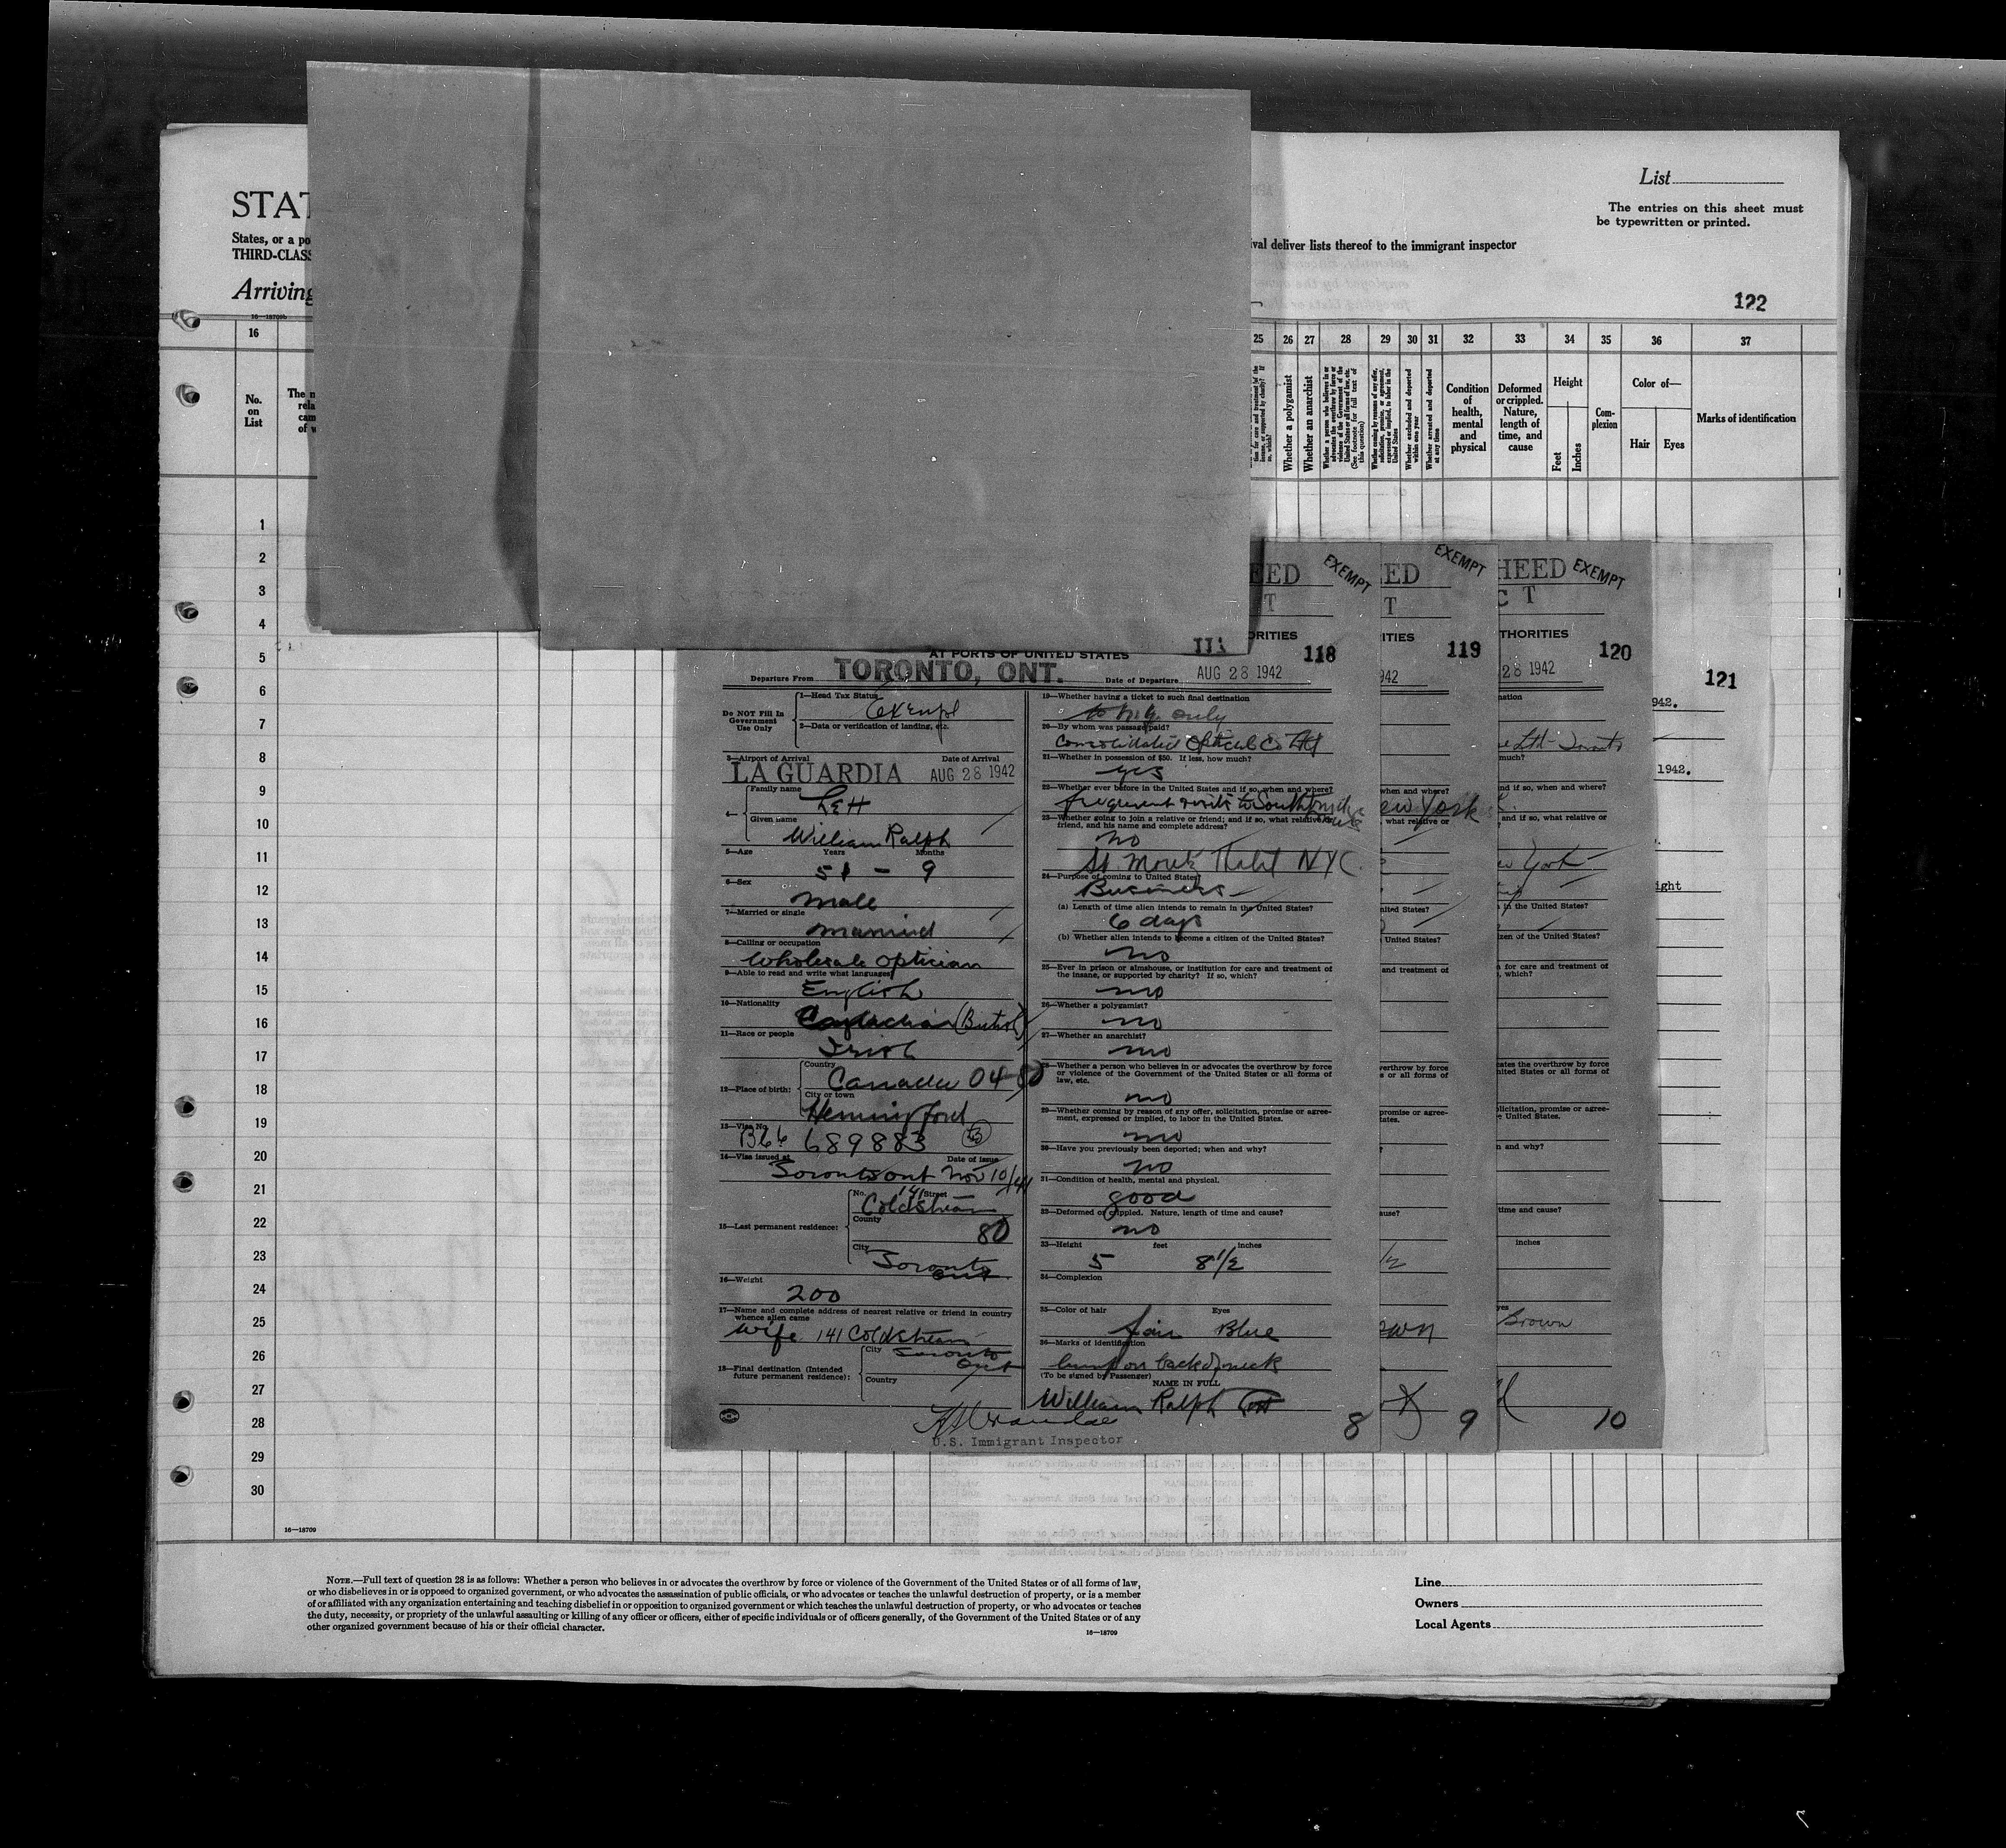 STAT
States, or a po
THIRD-CLASS
Arriving
List
The entries on this sheet must
be typewritten or printed.
val deliver lists thereof to the immigrant inspector
122
16—18709b
16 25 26 27 28 29 30 31 32 33 34 35 36 37
No.
on
List
Whether a polygamist
Whether an anarchist
Condition
of
health,
mental
and
physical
Deformed
or crippled.
Nature,
length of
time, and
cause
Height
Feet
Inches
Com-
plexion
Color of—
Hair
Eyes
Marks of identification
1
2
3
4
5
6
7
8
9
10
11
12
13
14
15
16
17
18
19
20
21
22
23
24
25
26
27
28
29
30
EED EXEMPT
T
ORITIES
118
AT PORTS OF UNITED STATES
Departure From TORONTO, ONT. Date of Departure AUG 28 1942
Do NOT Fill In
Government
Use Only
1—Head Tax Status
Exempt
2—Data or verification of landing, etc.
3—Airport of Arrival Date of Arrival
LA GUARDIA AUG 28 1942
4—
Family name
Given name
William Ralph
5—Age Years Months
51 - 9
6—Sex
Male
7—Married or single
married
8—Calling or occupation
Wholesale optician
9—Able to read and write what languages
English
10—Nationality
Canadian (British)
11—Race or people
Irish
12—Place of birth:
Country
Canada 04-80
City or town
Hemmingford
13—Visa No.
689883
14—Visa issued at Date of issue
Toronto ont Nov 10/41
15—Last permanent residence:
No. 141 Street
Coldstream
County
80
City
Toronto
Ont
16—Weight
200
17—Name and complete address of nearest relative or friend in country
whence alien came
Wife 141 Coldstream
18—Final destination (Intended
future permanent residence):
City Toronto
Ont
Country
19—Whether having a ticket to such final destination
to N.Y. only
20—By whom was passage paid?
Consolidated Optical Co Ltd
21—Whether in possession of $50. If less, how much?
yes
22—Whether ever before in the United States and if so, when and where?
frequent visits to Southbridge
23—Whether going to join a relative or friend; and if so, what relative or
friend, and his name and complete address?
no
St Moritz Hotel NYC.
24—Purpose of coming to United States?
Business
(a) Length of time alien intends to remain in the United States?
6 days
(b) Whether alien intends to become a citizen of the United States?
no
25—Ever in prison or almshouse, or institution for care and treatment of
the insane, or supported by charity? If so, which?
no
26—Whether a polygamist?
no
27—Whether an anarchist?
no
28—Whether a person who believes in or advocates the overthrow by force
or violence of the Government of the United States or all forms of
law, etc.
no
29—Whether coming by reason of any offer, solicitation, promise or agree-
ment, expressed or implied, to labor in the United States.
no
30—Have you previously been deported; when and why?
no
31—Condition of health, mental and physical.
good
32—Deformed or crippled. Nature, length of time and cause?
no
33—Height feet inches
5 8 1/2
34—Complexion
35—Color of hair Eyes
fair Blue
36—Marks of identification
lump on back of neck
(To be signed by Passenger)
NAME IN FULL
William Ralph
U.S. Immigrant Inspector
8
ED EXEMPT
T
ITIES
119
942
when and where?
ew York
what relative or
nited States?
United States?
and treatment of
verthrow by force
s or all forms of
promise or agree-
tates.
?
ause?
1/2
own
9
HEED EXEMPT
C T
THORITIES
120
28 1942
nation
e Ltd - Toronto
much?
nd if so, when and where?
and if so, what relative or
w York
in the United States?
zen of the United States?
n for care and treatment of
, which?
cates the overthrow by force
nited States or all forms of
olicitation, promise or agree-
e United States.
n and why?
time and cause?
inches
yes
Brown
10
121
942.
1942.
ight
16—18709
NOTE.—Full text of question 28 is as follows: Whether a person who believes in or advocates the overthrow by force or violence of the Government of the United States or of all forms of law,
or who disbelieves in or is opposed to organized government, or who advocates the assassination of public officials, or who advocates or teaches the unlawful destruction of property, or is a member
of or affiliated with any organization entertaining and teaching disbelief in or opposition to organized government or which teaches the unlawful destruction of property, or who advocates or teaches
the duty, necessity, or propriety of the unlawful assaulting or killing of any officer or officers, either of specific individuals or of officers generally, of the Government of the United States or of any
other organized government because of his or their official character.
16—18709
Line
Owners
Local Agents